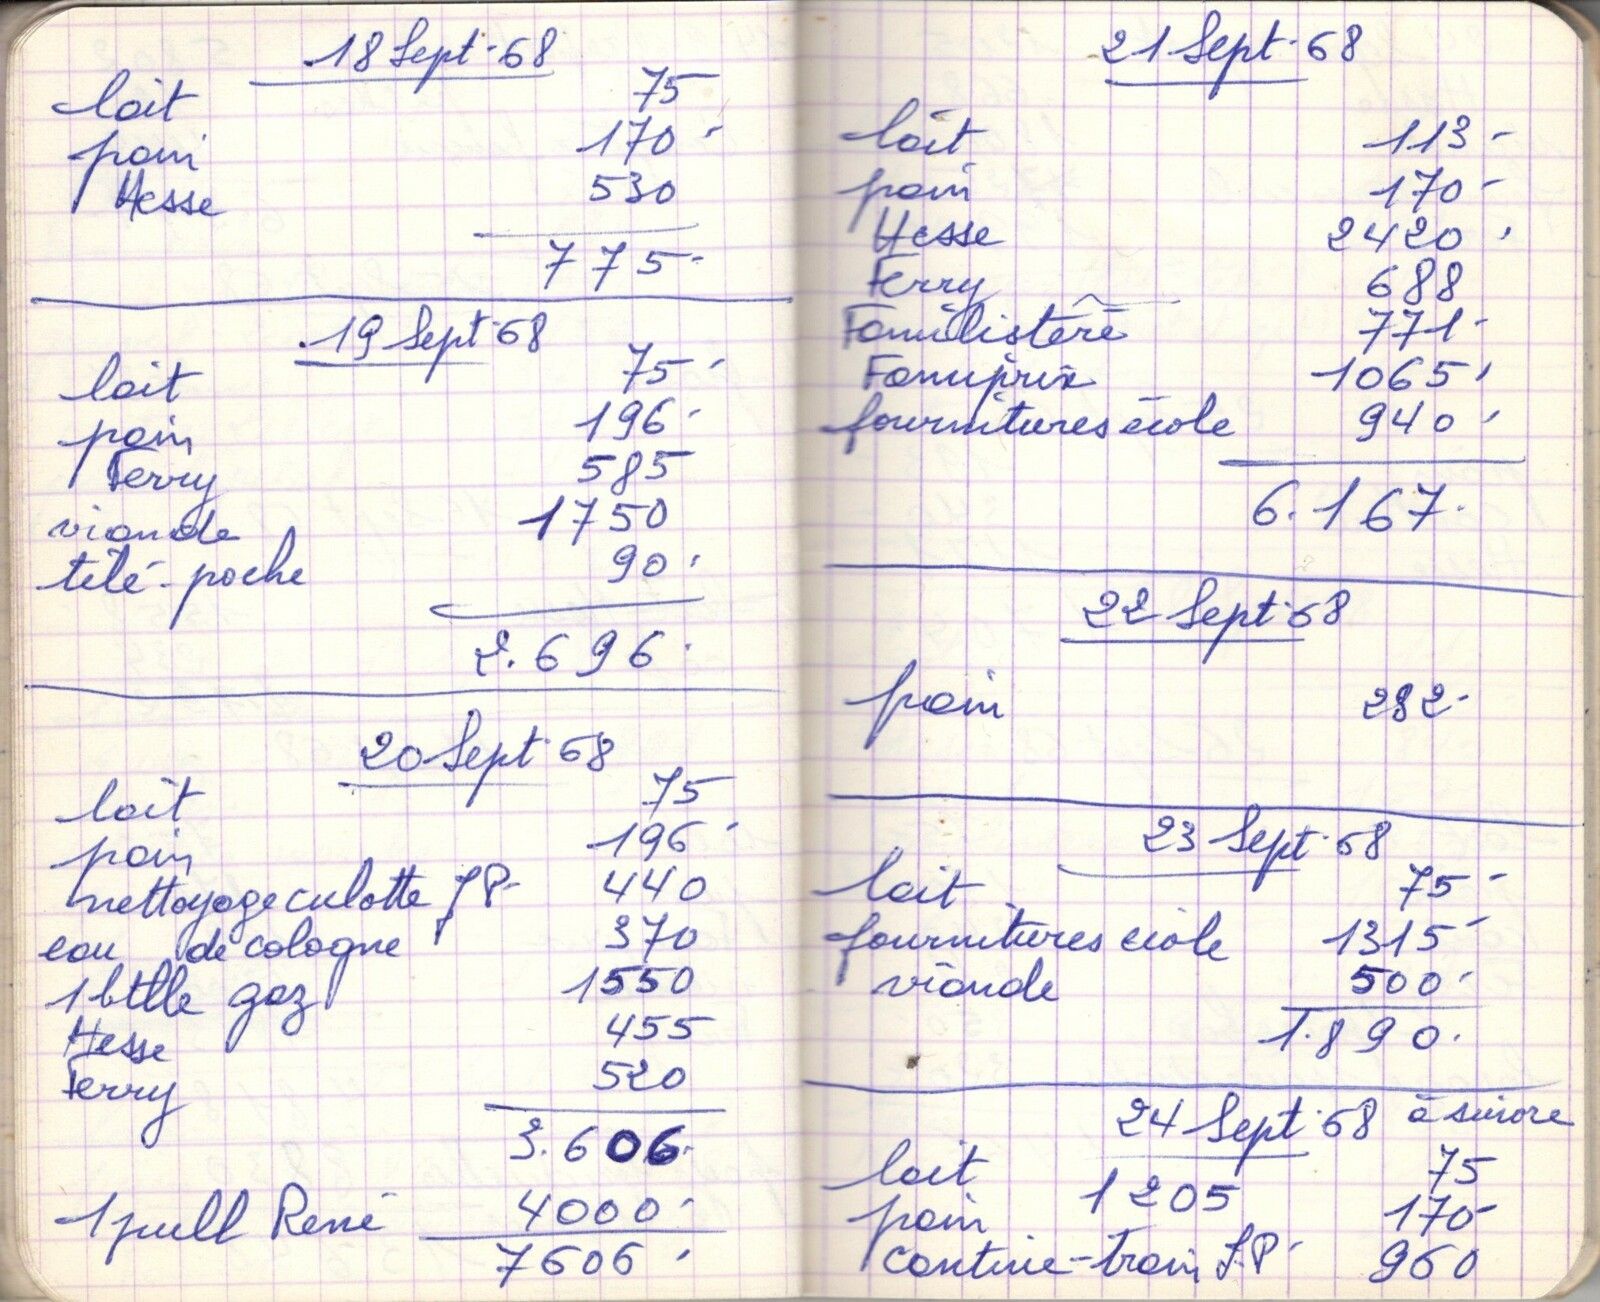 18 Sept. 68
lait 75
pain 170.
Hesse 530
775.
19 Sept. 68
lait 75.
pain 196.
Ferry 585
viande 1750
télé-poche 90.
2.696.
20 Sept. 68
lait 75
pain 196.
nettoyage culotte JP. 440
eau de cologne 370
1 btlle gaz 1550
Hesse 455
Ferry 520
3.606.
1 pull René 4000.
7606.
21 Sept. 68
lait 113-
pain 170-
Hesse 2420.
Ferry 688
Familistère 771-
Famiprix 1065.
fournitures école 940.
6.167.
22 Sept. 68
pain 282.
23 Sept. 68
lait 75-
fournitures école 1315-
viande 500.
1.890.
24 Sept. 68 à suivre
lait 75
pain 1205 170-
cantine-train J.P. 960